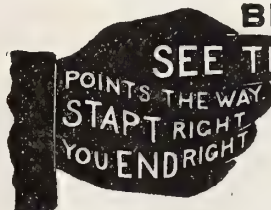 B
SEE T
POINTS THE WAY.
STAPT RIGHT
YOU END RIGHT